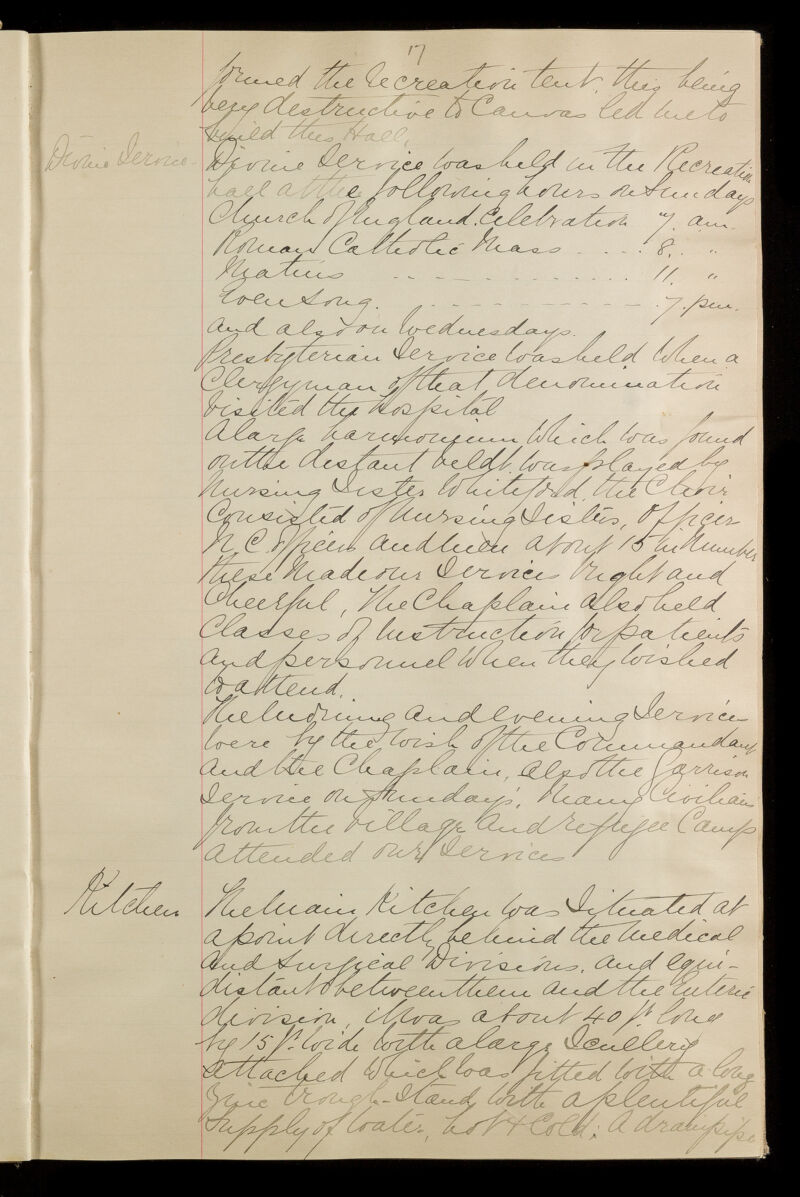 17
formed the recreation tent, this being
very destructive to Canvas led me to
build this Hall.
Divine Service
Divine Service was held in the Recreation
hall at the following hours on Sundays
Church of England. Celebration 7. am.
Roman Catholic Mass ..... 8. "
Matins ............... 11. "
Even Song. ............ 7. pm.
and also on Wednesdays.
Presbyterian Service was held when a
Clergyman of that denomination
visited the Hospital
A large harmonium which was found
on the distant veldt was played by
Nursing Sister Whiteford, the Choir
Consisted of Nursing Sisters, Officer
N. C. officers and men about 15 in number
these made our Services bright and
Cheerful, The Chaplain also held
Classes of Instruction for patients
and personnel when they wished
to attend.
The morning and evening Services
were by the wish of the Commandant
and the Chaplain, also the Garrison
Service on Sundays, Many Civilians
from the village and refugee Camp
attended our Services
Kitchen
The main Kitchen was Situated at
a point directly behind the Medical
and Surgical Divisions, and equi-
distant between them and the Enteric
division, it was about 40 ft long
by 15 ft wide with a large Scullery
attached which was fitted with a long
zinc trough-Stand with a plentiful
Supply of water, hot & Cold: A drainpipe